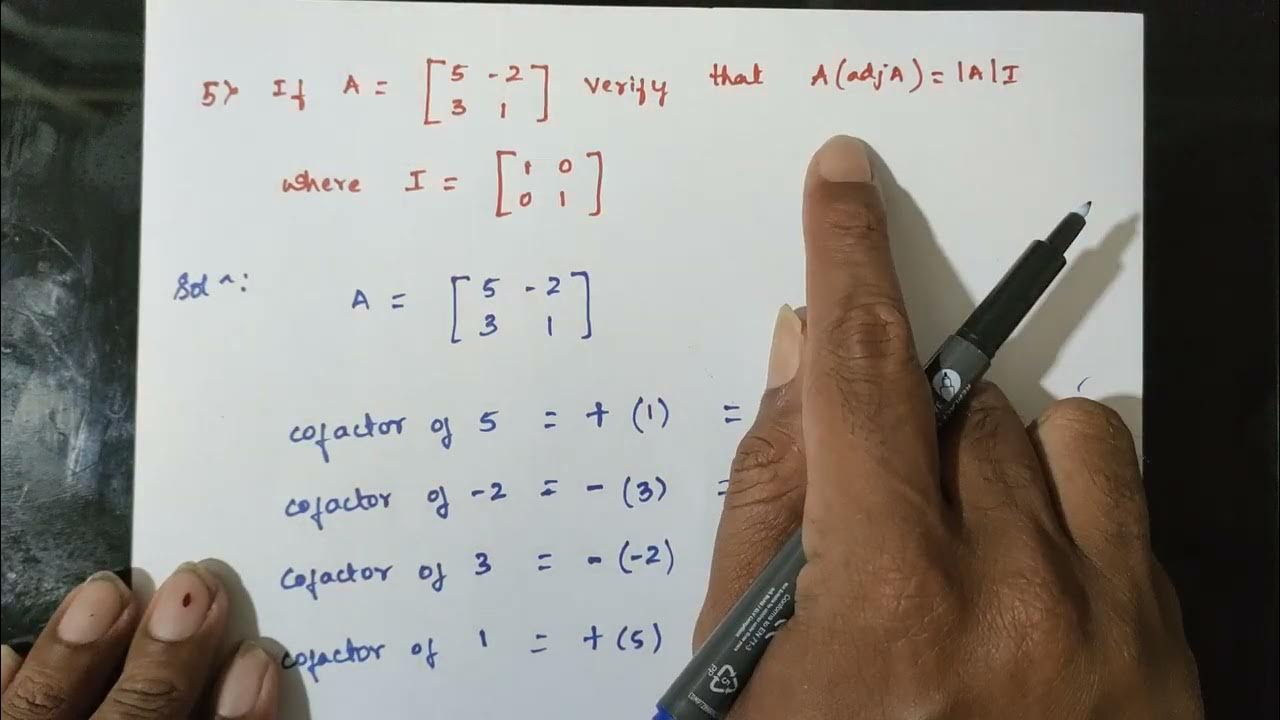 5) If A = [5 -2 verify that A(adjA) = |A|I
3 1]
where I = [1 0
0 1]
Sol^n: A = [5 -2
3 1]
cofactor of 5 = + (1) =
cofactor of -2 = - (3) =
cofactor of 3 = - (-2)
cofactor of 1 = + (5)